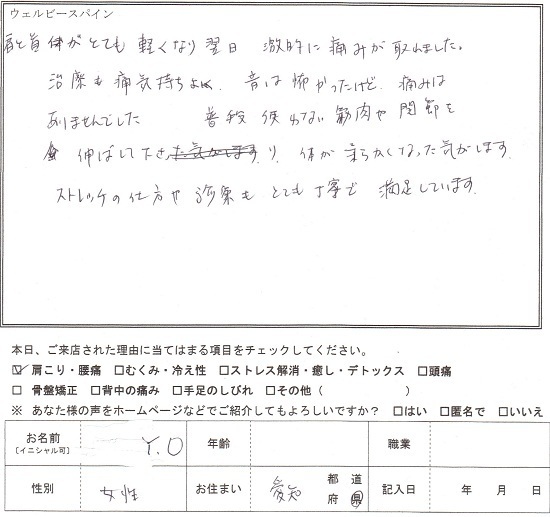 ウェルビースパイン
肩と首 体がとても 軽くなり 翌日 激的に 痛みが 取れました。
治療も 痛気持ちよく、音は 怖かったけど、痛みは
ありませんでした 普段 使わない 筋肉や 関節を
伸ばして下さり、体が 柔らかくなった気がします。
ストレッチの仕方や 診察も とても 丁寧で 満足しています。
本日、ご来店された理由に当てはまる項目をチェックしてください。
☑肩こり・腰痛 □むくみ・冷え性 □ストレス解消・癒し・デトックス □頭痛
□ 骨盤矯正 □背中の痛み □手足のしびれ □その他（ ）
※ あなた様の声をホームページなどでご紹介してもよろしいですか？ □はい □匿名で □いいえ
お名前 [イニシャル可] Y.O 年齢 職業
性別 女性 お住まい 愛知 都 道 府 県 記入日 年 月 日